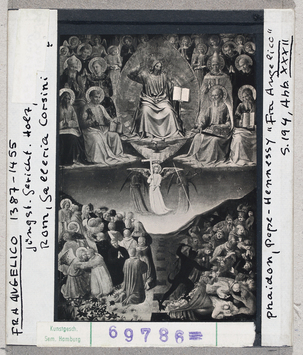 FRA ANGELICO 1387-1455
jüngst. Gericht. Holz
Rom, Galleria Corsini
phaidom, pope-Hennessy „Fra Angelico“
S.194, Abb XXXII
Kunstgesch.
Sem. Hamburg
69786